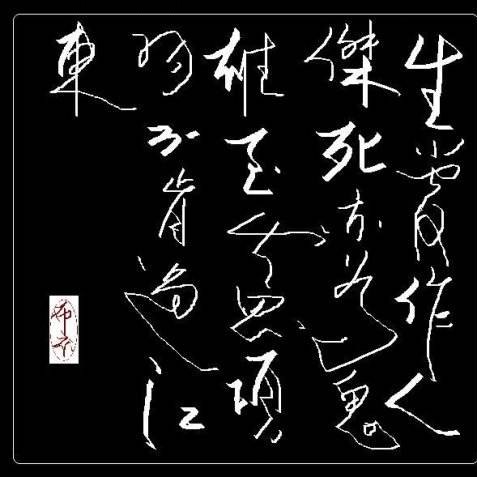 生當作人
傑死亦為鬼
雄至今思項
羽不肯過江
東